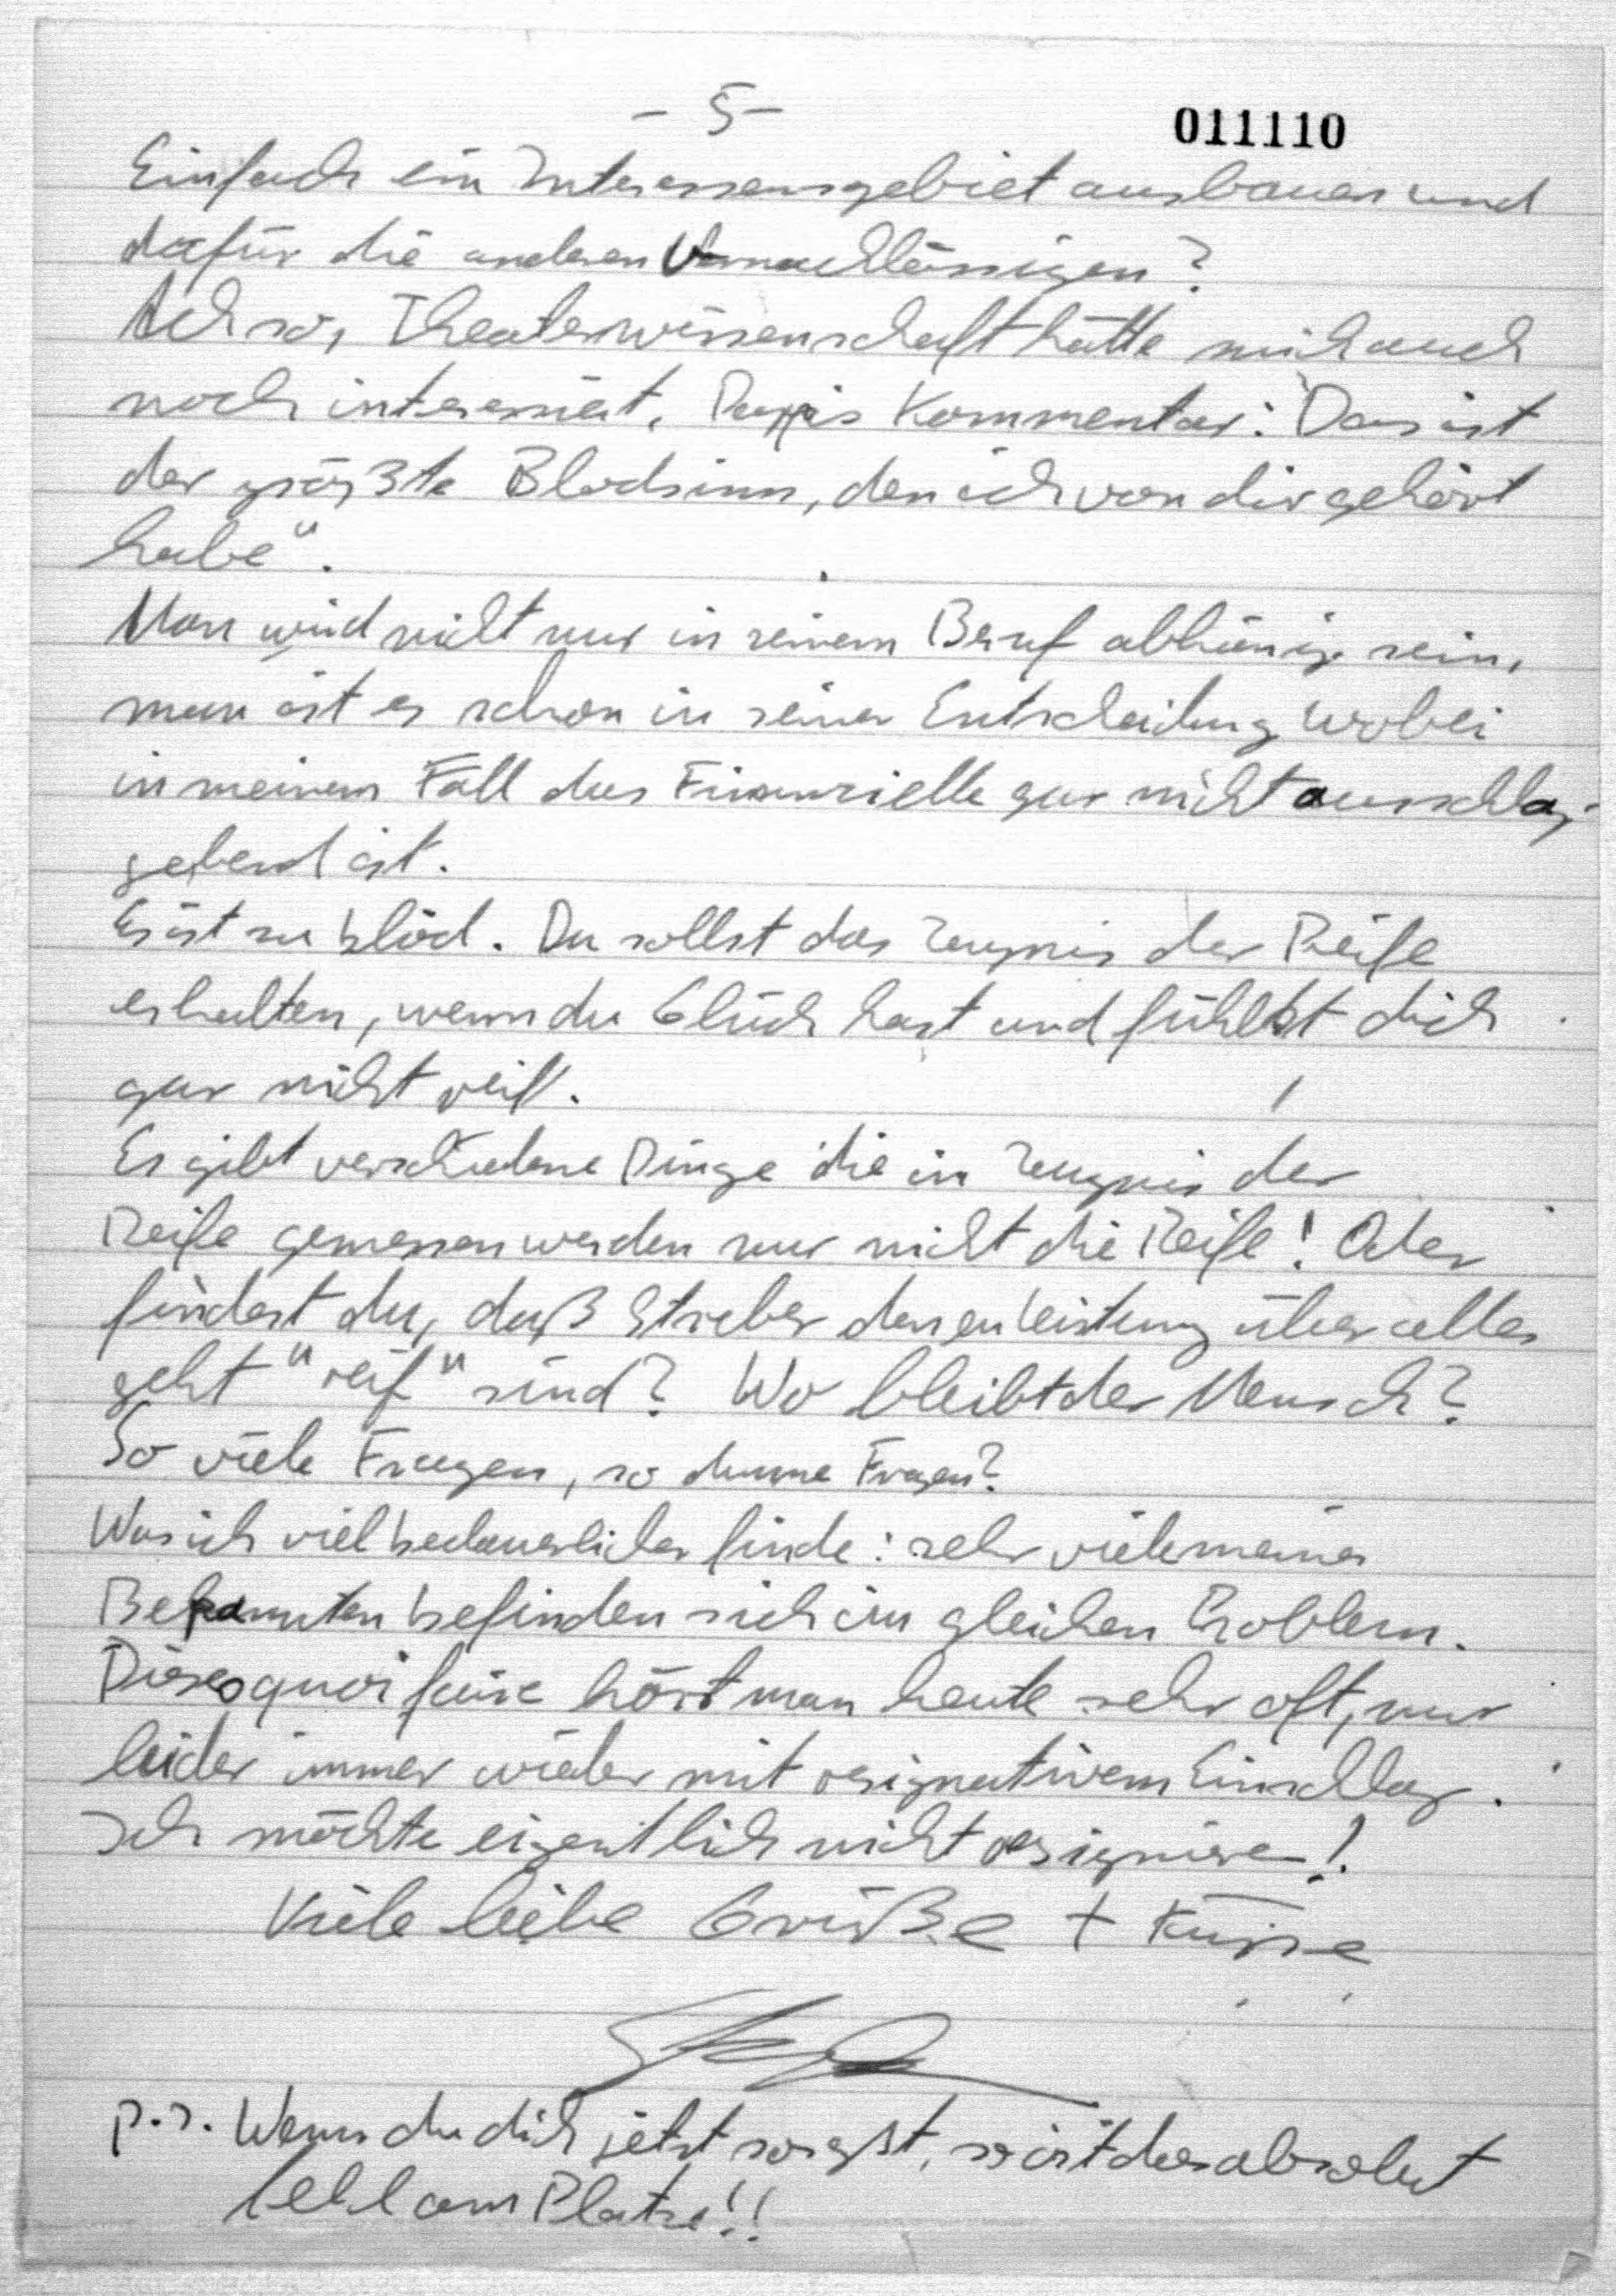 - 5 -
011110
Einfach ein Interessensgebiet ausbauen und
dafür die anderen Vernachlässigen?
Ach so, Theaterwissenschaft hätte mich auch
noch interessiert. Pappis Kommentar: "Das ist
der größte Blödsinn, den ich von dir gehört
habe".
Man wird nicht nur in seinem Beruf abhänig sein,
man ist es schon in seiner Entscheidung wobei
in meinem Fall das Finanzielle gar nicht ausschlag-
gebend ist.
Es ist zu blöd. Du sollst das Zeugnis der Reife
erhalten, wenn du Glück hast und fühlst dich
gar nicht reif.
Es gibt verschiedene Dinge die in Zeugnis der
Reife gemessen werden nur nicht die Reife! Oder
findest du, daß Streber denen Leistung über alles
geht "reif" sind? Wo bleibt der Mensch?
So viele Fragen, so dumme Fragen?
Was ich viel bedauerlicher finde: sehr viele meiner
Bekannten befinden sich im gleichen Problem.
Dieses quoi faire hört man heute sehr oft, nur
leider immer wieder mit resignativem Einschlag.
Ich möchte eigentlich nicht resignieren!
Viele liebe Grüße + Küsse
p.s. Wenn du dich jetzt sorgst, so ist das absolut
fehl am Platze!!